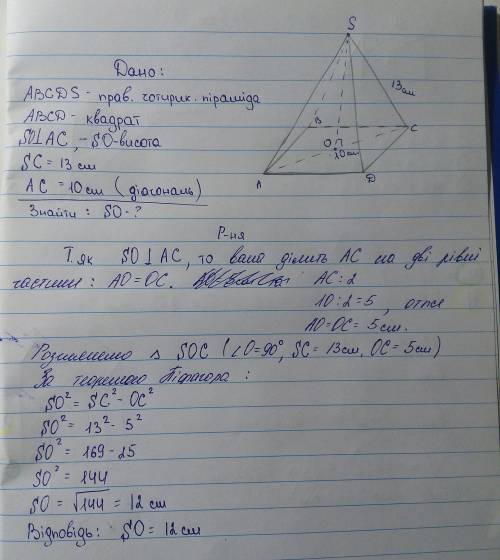 S
Дано:
ABCDS - прав. чотирик. піраміда
13 см
ABCD - квадрат
B
C
SO⊥AC, - SO - висота
O
10см
SC = 13 см
A
D
AC = 10 см (діагональ)
Знайти: SO - ?
Р-ня
Т. як SO⊥AC, то вона ділить AC на дві рівні
частини: AO = OC. AC : 2
10 : 2 = 5, отже
AO = OC = 5 см.
Розглянемо Δ SOC (∠O = 90°, SC = 13 см, OC = 5 см)
За теоремою Піфагора:
SO² = SC² - OC²
SO² = 13² - 5²
SO² = 169 - 25
SO² = 144
SO = √144 = 12 см
Відповідь: SO = 12 см